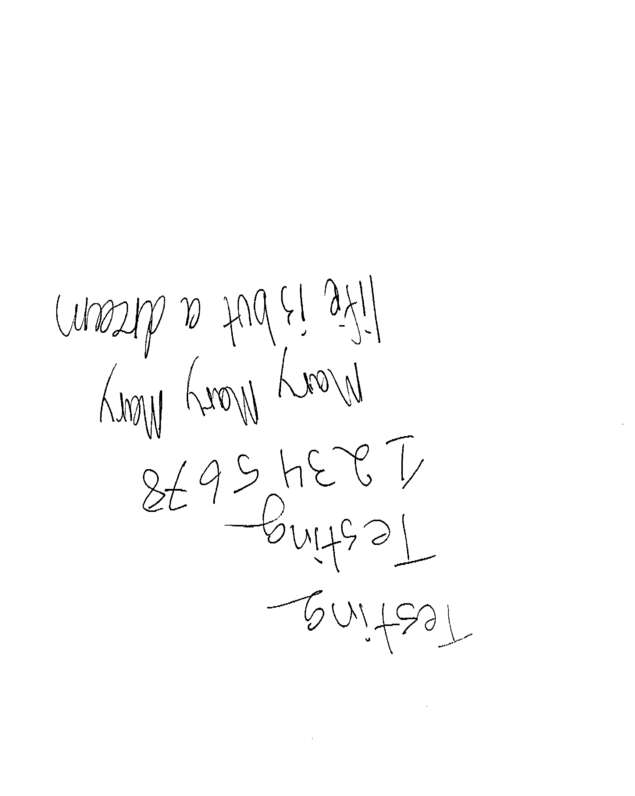 Testing
Testing
1 2 3 4 5 6 7 8
Mary Mary Mary
life is but a dream